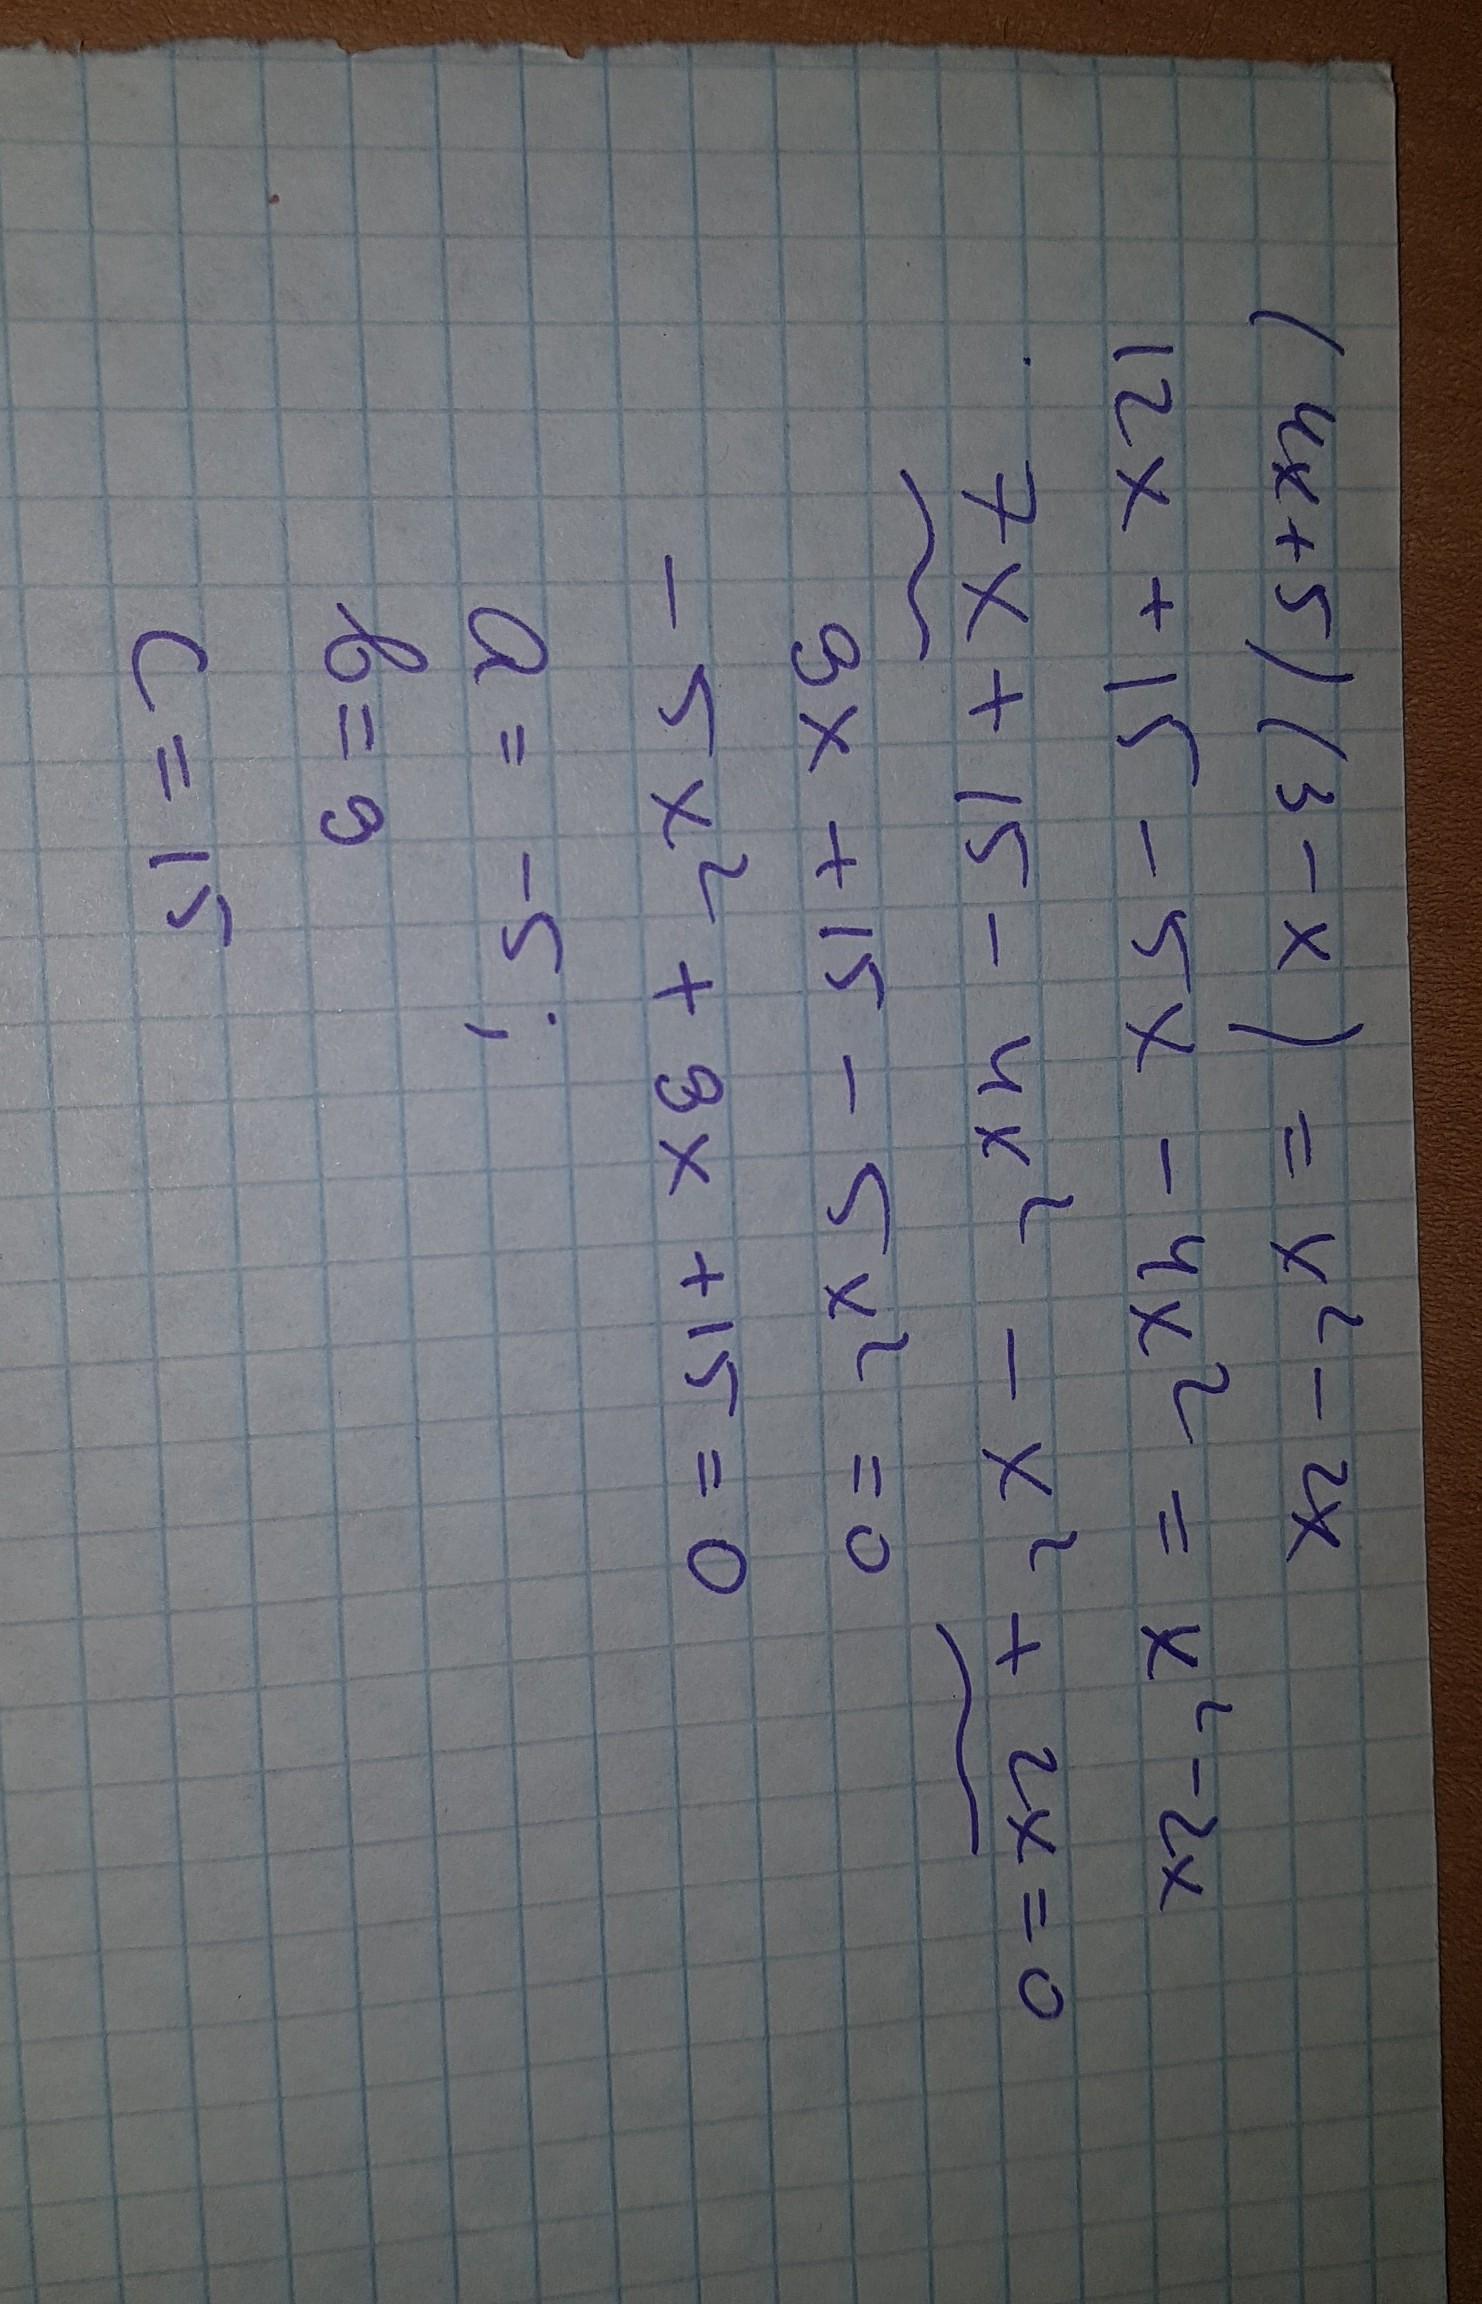 (4x+5)(3-x) = x² - 2x
12x + 15 - 5x - 4x² = x² - 2x
7x + 15 - 4x² - x² + 2x = 0
9x + 15 - 5x² = 0
- 5x² + 9x + 15 = 0
a = -5;
b = 9
c = 15